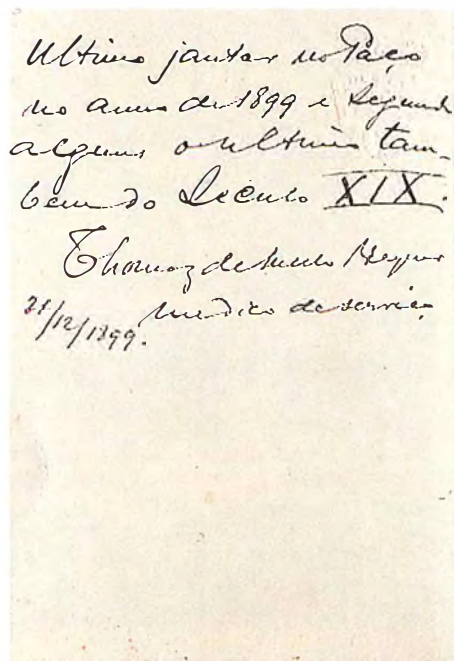 Ultimo jantar no Paço
no anno de 1899 e segundo
alguns o ultimo tam-
bem do Seculo XIX.
Thomaz de Mello Breyner
medico de serviço
31/12/1899.